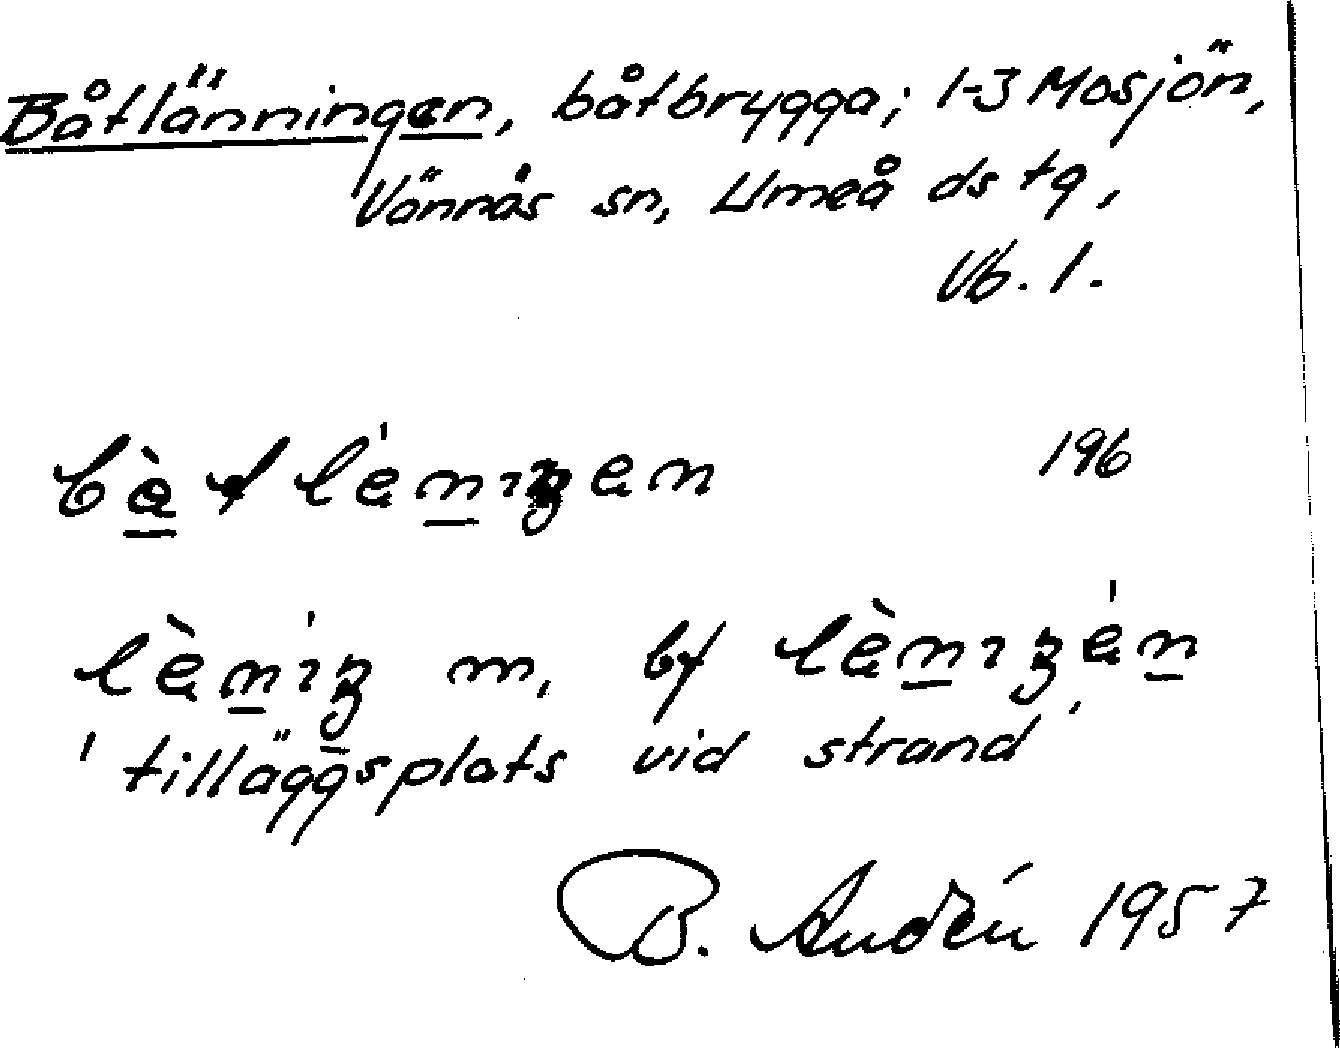 Båtlänningen, båtbrygga; 1-3 Mosjön,
Vännäs sn, Umeå ds tg,
Vb. l.
bàtlènıŋen 196
lènıŋ m, bf lènıŋen
'tilläggsplats vid strand'
B. Andén 1957